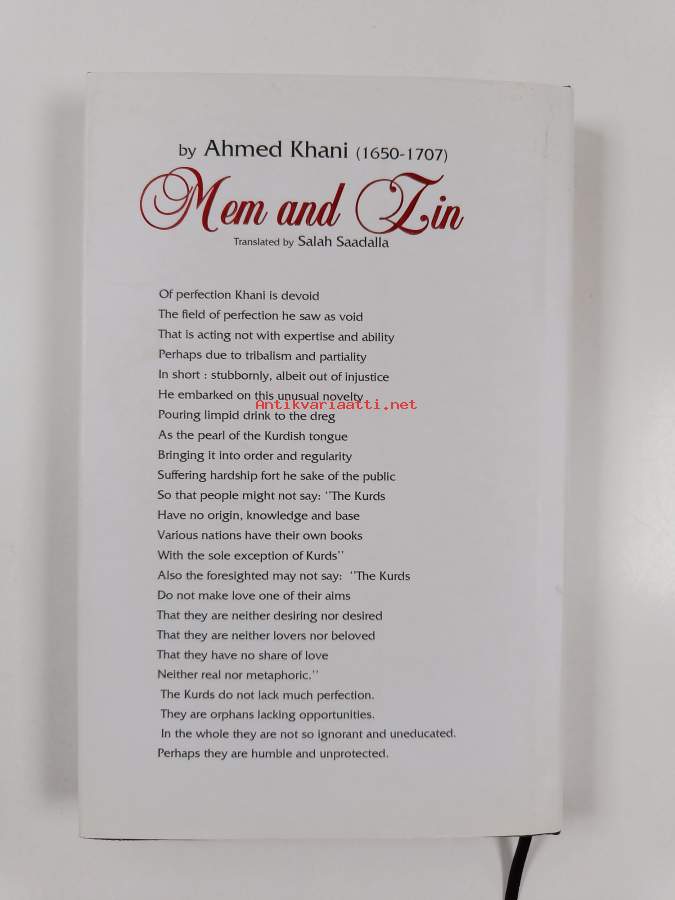 by Ahmed Khani (1650-1707)
Mem and Zin
Translated by Salah Saadalla
Of perfection Khani is devoid
The field of perfection he saw as void
That is acting not with expertise and ability
Perhaps due to tribalism and partiality
In short : stubbornly, albeit out of injustice
He embarked on this unusual novelty
Antikvariaatti.net
Pouring limpid drink to the dreg
As the pearl of the Kurdish tongue
Bringing it into order and regularity
Suffering hardship fort he sake of the public
So that people might not say: "The Kurds
Have no origin, knowledge and base
Various nations have their own books
With the sole exception of Kurds"
Also the foresighted may not say: "The Kurds
Do not make love one of their aims
That they are neither desiring nor desired
That they are neither lovers nor beloved
That they have no share of love
Neither real nor metaphoric."
The Kurds do not lack much perfection.
They are orphans lacking opportunities.
In the whole they are not so ignorant and uneducated.
Perhaps they are humble and unprotected.